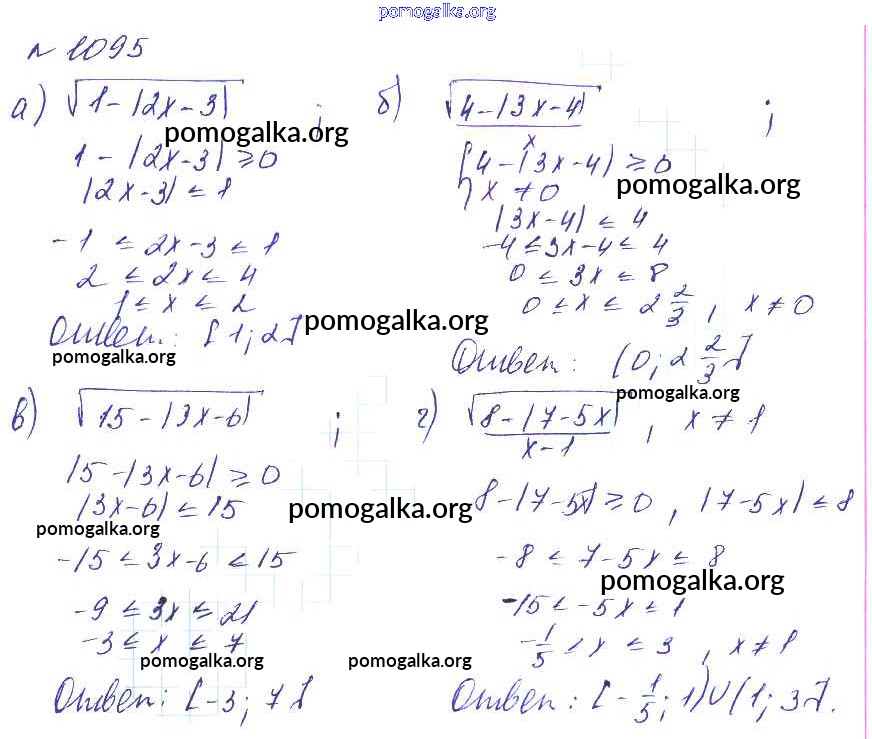 pomogalka.org
№ 1095
а) √(1-|2x-3|) ;
pomogalka.org
1-|2x-3| ≥ 0
|2x-3| ≤ 1
-1 ≤ 2x-3 ≤ 1
2 ≤ 2x ≤ 4
1 ≤ x ≤ 2
Ответ: [1; 2]
pomogalka.org
pomogalka.org
б) √(4-|3x-4|) / x ;
{4-|3x-4| ≥ 0
x ≠ 0
pomogalka.org
|3x-4| ≤ 4
-4 ≤ 3x-4 ≤ 4
0 ≤ 3x ≤ 8
0 ≤ x ≤ 2 2/3 , x ≠ 0
Ответ: (0; 2 2/3]
pomogalka.org
в) √(15-|3x-6|) ;
15-|3x-6| ≥ 0
|3x-6| ≤ 15
pomogalka.org
pomogalka.org
-15 ≤ 3x-6 ≤ 15
-9 ≤ 3x ≤ 21
-3 ≤ x ≤ 7
pomogalka.org
pomogalka.org
Ответ: [-3; 7]
г) √(8-|7-5x|) / (x-1) , x ≠ 1
8-|7-5x| ≥ 0 , |7-5x| ≤ 8
-8 ≤ 7-5x ≤ 8
pomogalka.org
-15 ≤ -5x ≤ 1
-1/5 ≤ x ≤ 3 , x ≠ 1
Ответ: [-1/5; 1)∪(1; 3].